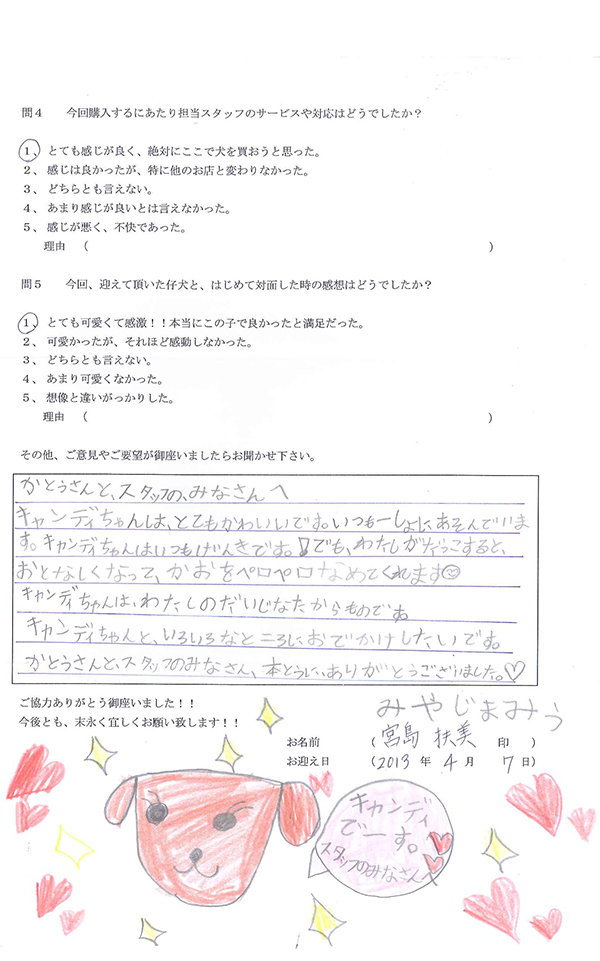 問4　今回購入するにあたり担当スタッフのサービスや対応はどうでしたか？
1、とても感じが良く、絶対にここで犬を買おうと思った。
2、感じは良かったが、特に他のお店と変わりなかった。
3、どちらとも言えない。
4、あまり感じが良いとは言えなかった。
5、感じが悪く、不快であった。
理由　（　　　）
問5　今回、迎えて頂いた仔犬と、はじめて対面した時の感想はどうでしたか？
1、とても可愛くて感激！！本当にこの子で良かったと満足だった。
2、可愛かったが、それほど感動しなかった。
3、どちらとも言えない。
4、あまり可愛くなかった。
5、想像と違いがっかりした。
理由　（　　　）
その他、ご意見やご要望が御座いましたらお聞かせ下さい。
かとうさんと、スタッフの、みなさんへ
キャンディちゃんは、とてもかわいいです。いつも一しょにあそんでいま
す。キャンディちゃんはいつもげんきです。!でも、わたしがだっこすると、
おとなしくなって、かおをペロペロなめてくれます☺
キャンディちゃんは、わたしのだいじなたからものです。
キャンディちゃんと、いろいろなところにおでかけしたいです。
かとうさんと、スタッフのみなさん、本とうに、ありがとうございました。♡
ご協力ありがとう御座いました！！
今後とも、末永く宜しくお願い致します！！
みやじまみう
お名前　（宮島 扶美　印　）
お迎え日　（2013 年 4 月 7 日）
キャンディ
でーす。
スタッフのみなさんへ